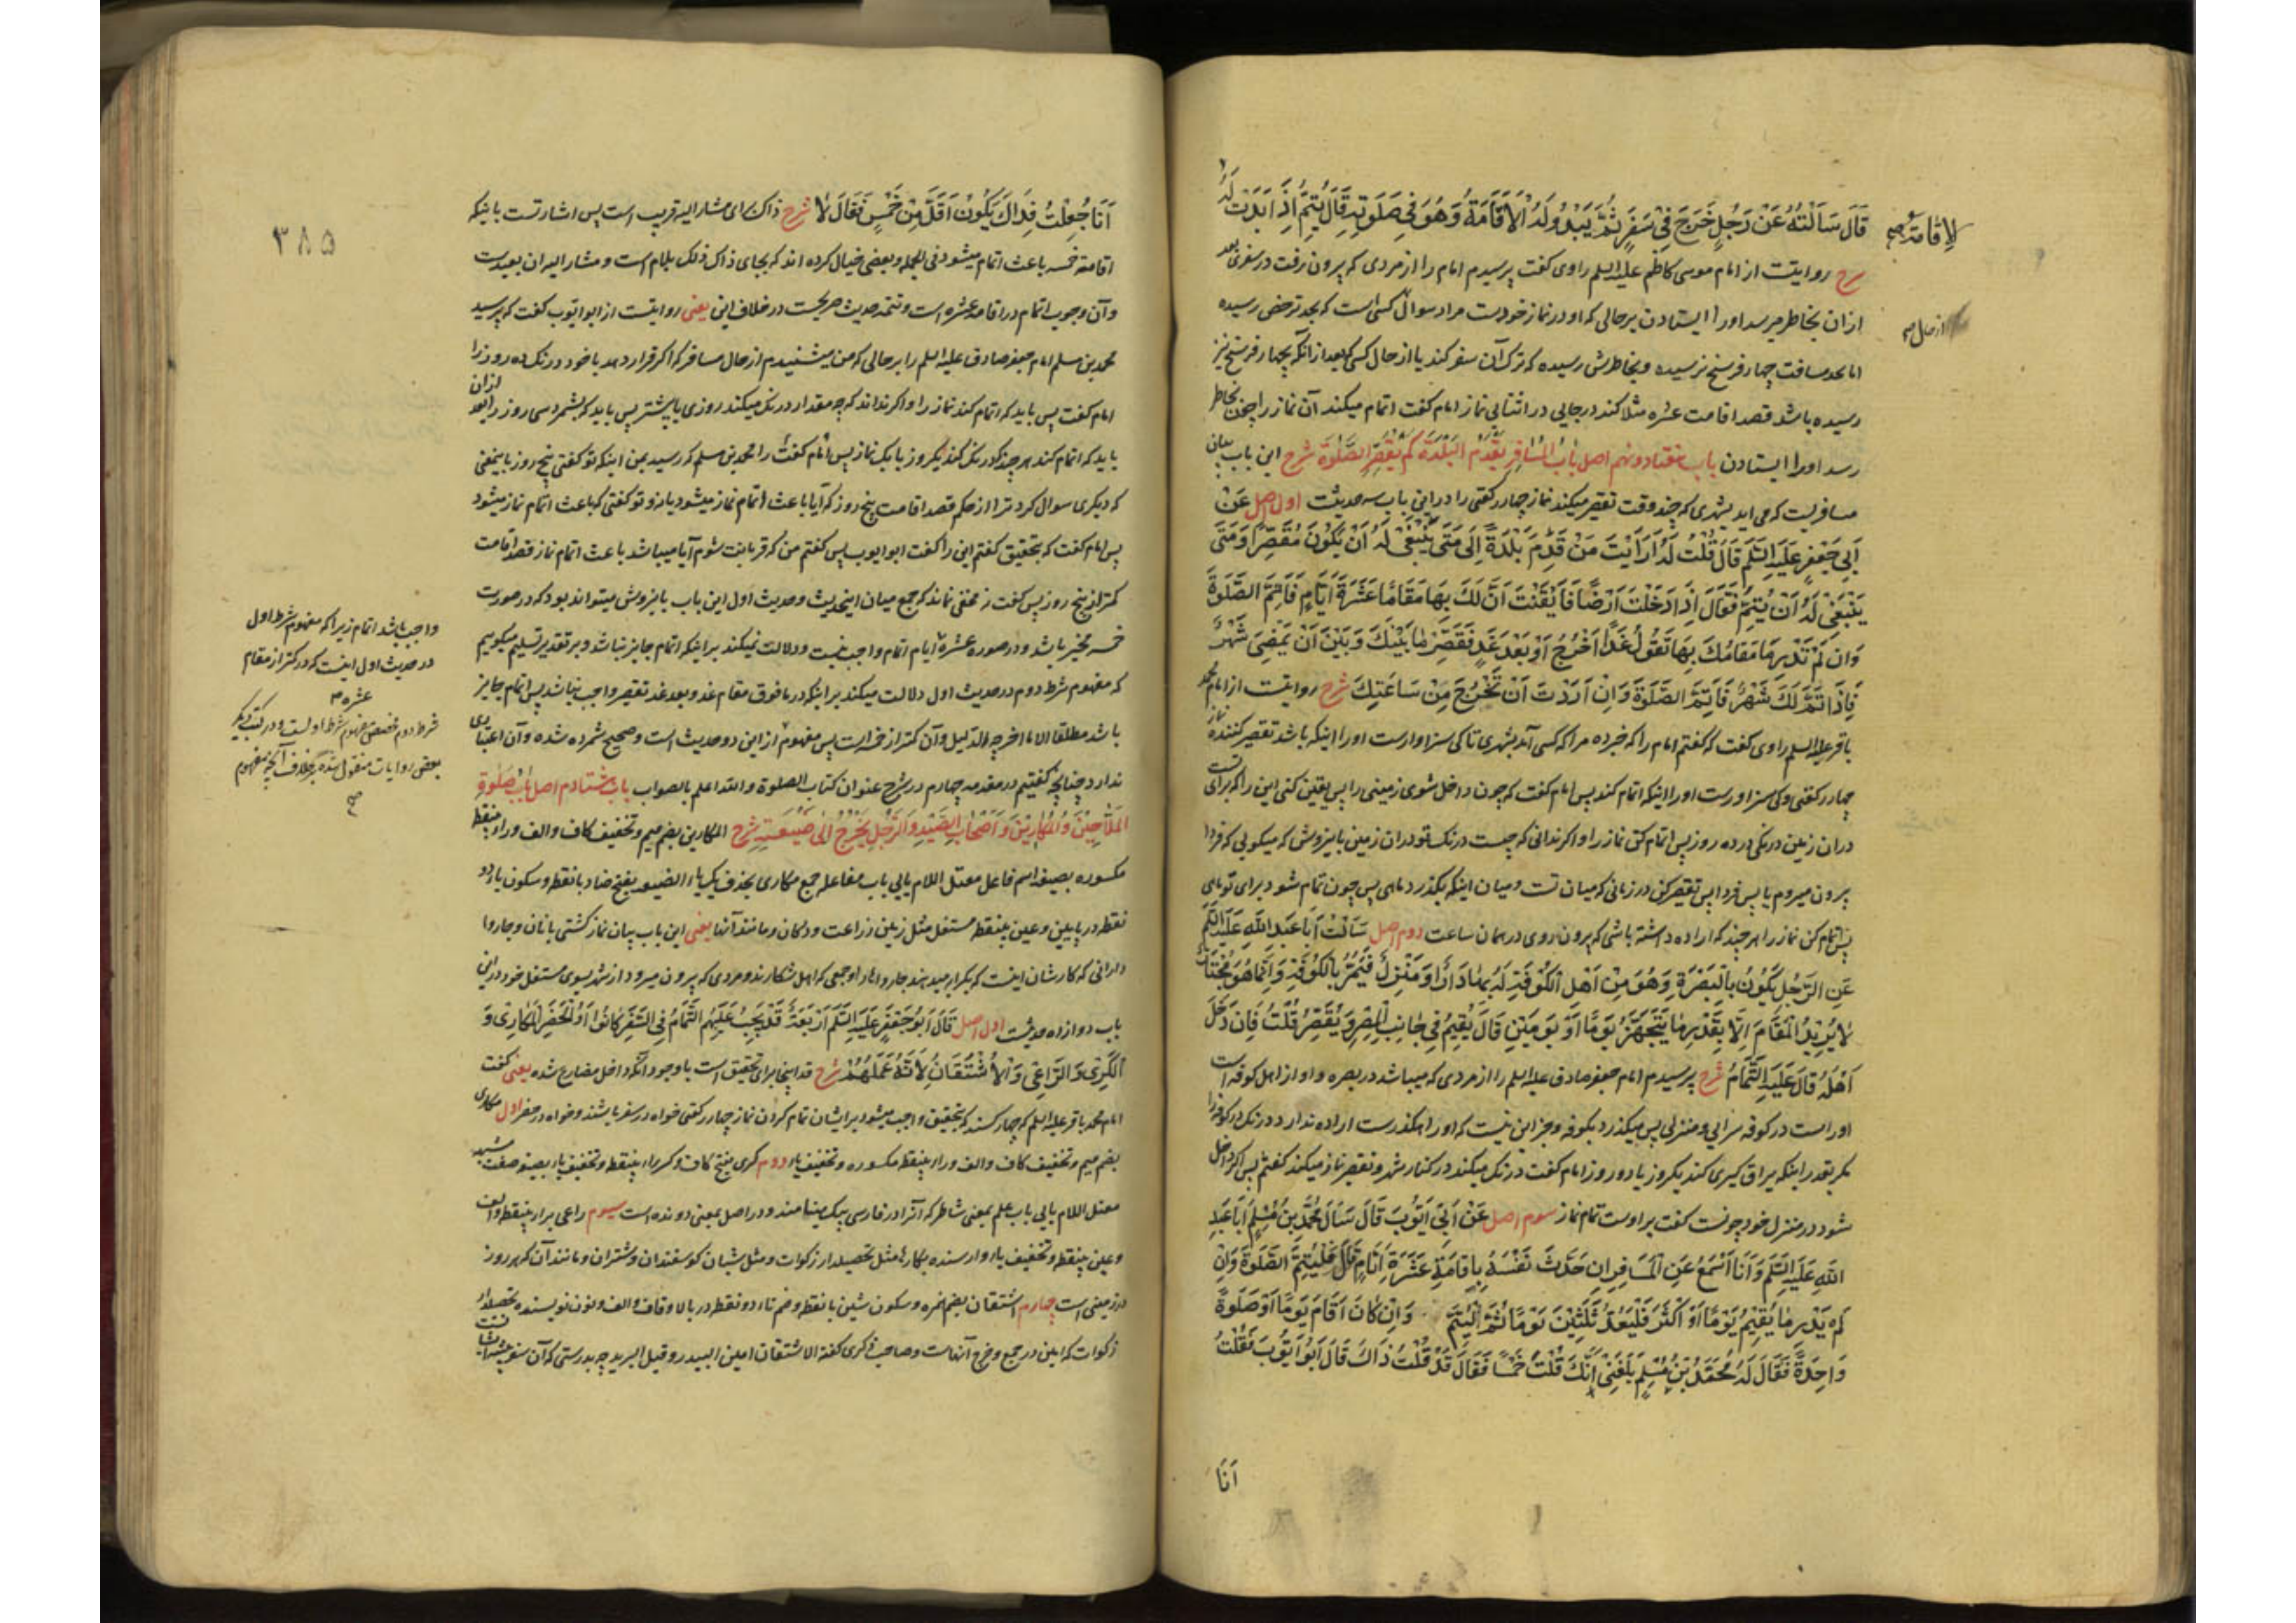 قَالَ سَأَلْتُهُ عَنْ رَجُلٍ خَرَجَ فِي سَفَرٍ ثُمَّ يَبْدُو لَهُ الْاِقَامَةُ وَهُوَ فِي صَلَوتِهِ قَالَ يُتِمُّ اِذَا بَدَتْ لَهُ
للاقامة
شرح روایتست از امام موسی کاظم علیه السلم راوی کفت پرسیدم امام را از مردی که بیرون رفت در سفری بعد
ازان بخاطر میرسد او را ایستادن بر حالی که او در نماز خودست مراد سوال کسی است که بحد ترخص رسیده
از حال
اما بحد مسافت چهار فرسخ نرسیده و بخاطرش رسیده که ترک آن سفر کند یا از حال کسی که بعد از انکه بچهار فرسخ نیز
رسیده باشد قصد اقامت عشره مثلا کند در جایی در اثنای نماز امام کفت اتمام میکند آن نماز را چون بخاطر
رسد او را ایستادن باب هفتاد و نهم اصل بَابُ الْمُسَافِرِ يَقْدَمُ الْبَلْدَةَ كَمْ يُقَصِّرُ الصَّلٰوةَ شرح این باب بیان
مسافریست که می اید بشهری که چند وقت تقصیر میکند نماز چهار رکعتی را در این باب سه حدیثست اول اصل عَنْ
اَبِي جَعْفَرٍ عَلَيْهِ السَّلَمُ قَالَ قُلْتُ لَهُ اَرَاَيْتَ مَنْ قَدِمَ بَلْدَةً اِلَى مَتَى يَنْبَغِي لَهُ اَنْ يَكُونَ مُقَصِّرًا وَمَتَى
يَنْبَغِي لَهُ اَنْ يُتِمَّ فَقَالَ اِذَا دَخَلْتَ اَرْضًا فَاَيْقَنْتَ اَنَّ لَكَ بِهَا مَقَامًا عَشَرَةَ اَيَّامٍ فَاَتِمَّ الصَّلَوةَ
وَاِنْ لَمْ تَدْرِ مَا مَقَامُكَ بِهَا تَقُولُ غَدًا اَخْرُجُ اَوْ بَعْدَ غَدٍ فَقَصِّرْ مَا بَيْنَكَ وَبَيْنَ اَنْ يَمْضِيَ شَهْرٌ
فَاِذَا تَمَّ لَكَ شَهْرٌ فَاَتِمَّ الصَّلَوةَ وَاِنْ اَرَدْتَ اَنْ تَخْرُجَ مِنْ سَاعَتِكَ شرح روایتست از امام محمد
باقر علیه السلم راوی کفت که کفتم امام را که خبر ده مرا که کسی آمد بشهری تا کی سزاوارست او را اینکه باشد تقصیر کننده نماز
چهار رکعتی و کی سزاورست او را اینکه اتمام کند پس امام کفت که چون داخل شوی زمینی را پس یقین کنی این را که برای تست
دران زمین درنکی ده روز پس اتمام کن نماز را و اکر ندانی که چیست درنک تو دران زمین باینروش که میکویی که فردا
بیرون میروم یا پس فردا پس تقصیر کن در زمانی که میان تست و میان اینکه بکذرد ماهی پس چون تمام شود برای تو ماهی
پس اتمام کن نماز را هر چند که اراده داشته باشی که بیرون روی در همان ساعت دوم اصل سَأَلْتُ اَبَا عَبْدِ اللهِ عَلَيْهِ السَّلَمُ
عَنِ الرَّجُلِ يَكُونُ بِالْبَصْرَةِ وَهُوَ مِنْ اَهْلِ الْكُوفَةِ لَهُ بِهَا دَارٌ وَمَنْزِلٌ فَيَمُرُّ بِالْكُوفَةِ وَاِنَّمَا هُوَ مُجْتَازٌ
لَا يُرِيدُ الْمُقَامَ اِلَّا بِقَدْرِ مَا يَتَجَهَّزُ يَوْمًا اَوْ يَوْمَيْنِ قَالَ يُقِيمُ فِي جَانِبِ الْمِصْرِ وَيُقَصِّرُ قُلْتُ فَاِنْ دَخَلَ
اَهْلَهُ قَالَ عَلَيْهِ التَّمَامُ شرح پرسیدم امام جعفر صادق علیه السلم را از مردی که میباشد در بصره و او از اهل کوفه است
او راست در کوفه سرایی و منزلی پس میکذرد بکوفه و جز این نیست که او راهکذرست اراده ندارد درنک در کوفه را
مکر بقدر اینکه یراق کیری کند یکروز یا دو روز امام کفت درنک میکند در کنار شهر و تقصیر نماز میکند کفتم پس اکر داخل
شود در منزل خود چونست کفت بر اوست تمام نماز سوم اصل عَنْ اَبِي اَيُّوبَ قَالَ سَاَلَ مُحَمَّدُ بْنُ مُسْلِمٍ اَبَا عَبْدِ
اللهِ عَلَيْهِ السَّلَمُ وَاَنَا اَسْمَعُ عَنِ الْمُسَافِرِ اِنْ حَدَّثَ نَفْسَهُ بِاِقَامَةِ عَشَرَةِ اَيَّامٍ قَالَ فَلْيُتِمَّ الصَّلَوةَ وَاِنْ
لَمْ يَدْرِ مَا يُقِيمُ يَوْمًا اَوْ اَكْثَرَ فَلْيَعُدَّ ثَلٰثِينَ يَوْمًا ثُمَّ لْيُتِمَّ وَاِنْ كَانَ اَقَامَ يَوْمًا اَوْ صَلَوةً
وَاحِدَةً فَقَالَ لَهُ مُحَمَّدُ بْنُ مُسْلِمٍ بَلَغَنِي اَنَّكَ قُلْتَ خَمْسًا فَقَالَ قَدْ قُلْتُ ذَاكَ قَالَ اَبُو اَيُّوبَ فَقُلْتُ
اَنَا
اَنَا جُعِلْتُ فِدَاكَ يَكُونُ اَقَلَّ مِنْ خَمْسٍ فَقَالَ لَا شرح ذاک برای مشار الیه قریب است پس اشارتست باینکه
۳۸۵
اقامته خمسه باعث اتمام میشود فی الجمله و بعضی خیال کرده اند که بجای ذاک ذلک بلام است و مشار الیه ان بعیدست
وآن وجوب اتمام در اقامه عشره است و تتمه حدیث صریحست در خلاف این یعنی روایتست از ابو ایوب کفت که پرسید
محمد بن مسلم امام جعفر صادق علیه السلم را بر حالی که من میشنیدم از حال مسافر که اکر قرار دهد با خود درنک ده روز را
امام کفت پس باید که اتمام کند نماز را و اکر نداند که چه مقدار درنک میکند روزی یا بیشتر پس باید که بشمرد سی روز را بعد ازان
باید که اتمام کند هر چند که درنک کند یکروز یا یک نماز پس امام کفت را محمد بن مسلم که رسید بمن اینکه تو کفتی پنج روز باینمعنی
که دیکری سوال کرد ترا از حکم قصد اقامت پنج روز که آیا باعث اتمام نماز میشود یا نه و تو کفتی که باعث اتمام نماز میشود
پس امام کفت که بتحقیق کفتم این را کفت ابو ایوب پس کفتم من که قربانت شوم آیا میباشد باعث اتمام نماز قصد اقامت
کمتر از پنج روز پس کفت نه مخفی نماند که جمع میان اینحدیث و حدیث اول این باب باینروش میتواند بود که در صورت
خمسه مخیر باشد و در صوره عشرة ایام اتمام واجب نیست ودلالت نمیکند بر اینکه اتمام جایز نباشد و بر تقدیر تسلیم میکوییم
که مفهوم شرط دوم در حدیث اول دلالت میکند بر اینکه در مافوق مقام غد و بعد غد تقصیر واجب نباشد پس اتمام جایز
باشد مطلقا الا ما اخرجه الدلیل وآن کمتر از خمسه است پس مفهوم از این دو حدیث است و صحیح شمرده شده وآن اعتباری
ندارد چنانچه کفتیم در مقدمه چهارم در شرح عنوان کتاب الصلوة والله اعلم بالصواب باب هشتادم اصل بَابُ صَلٰوةِ
الْمَلَّاحِينَ وَالْمُكَارِينَ وَاَصْحَابِ الصَّيْدِ وَالرَّجُلِ يَخْرُجُ اِلٰى ضَيْعَتِهِ شرح المکارین بضم میم و تخفیف کاف والف و راء بینقطه
مکسوره بصیغه اسم فاعل معتل اللام یایی باب مفاعله جمع مکاری بحذف یک یاء الضیعه بفتح ضاد با نقطه و سکون یاء دو
نقطه در پایین و عین بینقطه مستغل مثل زمین زراعت و دکان و مانند آنها یعنی این باب بیان نماز کشتی بانان و چاروا
دارانی که کارشان اینست که بکرایه میدهند چاروا ها را و جمعی که اهل شکارند و مردی که بیرون میرود از شهر بسوی مستغل خود در این
باب دوازده حدیثست اول اصل قَالَ اَبُو جَعْفَرٍ عَلَيْهِ السَّلَمُ اَرْبَعَةٌ قَدْ يَجِبُ عَلَيْهِمُ التَّمَامُ فِي السَّفَرِ كَانُوا اَوِ الْحَضَرِ الْمُكَارِي وَ
الْكَرِيُّ وَالرَّاعِي وَالْاُشْتُقَانُ لِاَنَّهُ عَمَلُهُمْ شرح قد اینجا برای تحقیق است با وجود آنکه داخل مضارع شده یعنی کفت
امام محمد باقر علیه السلم که چهار کسند که بتحقیق واجب میشود بر ایشان تمام کردن نماز چهار رکعتی خواه در سفر باشند و خواه در حضر اول مکاری
بضم میم و تخفیف کاف والف و راء بینقطه مکسوره و تخفیف یاء دوم کری بفتح کاف و کسر راء بینقطه و تخفیف یاء بصیغه صفت مشبهه
معتل اللام یایی باب علم بمعنی شاطر که آنرا در فارسی پیک مینامند و در اصل بمعنی دونده است سیوم راعی براء بینقطه والف
و عین بینقطه و تخفیف یاء وارسنده بکارها مثل تحصیلدار زکوات و مثل شبان کوسفندان و شتران و مانند آن که هر روز
در زمینی است چهارم اشتقان بضم همزه و سکون شین با نقطه و ضم تاء دو نقطه در بالا و قاف والف و نون نویسنده تحصیلدار
زکوات که امین در جمع و خرج آنهاست و صاحب ذکری کفته الاشتقان امین البیدر و قیل البرید چه بدرستی که آن سفر
واجب باشد اتمام زیرا که مفهوم شرط اول
در حدیث اول اینست که در کمتر از مقام
عشره
شرط دوم مخصص مفهوم شرط اولست و در کتب دیکر
بعضی روایات منقول شده بر خلاف آنچه مفهوم